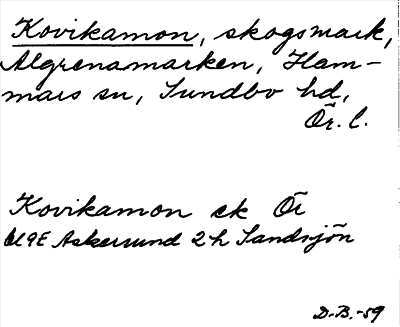 Kovikamon, skogsmark,
Algrenamarken, Ham-
mars sn, Sundbo hd,
Ör. l.
Kovikamon ek Ör
61 9E Askersund 2h Sandsjön
D.-B.-59